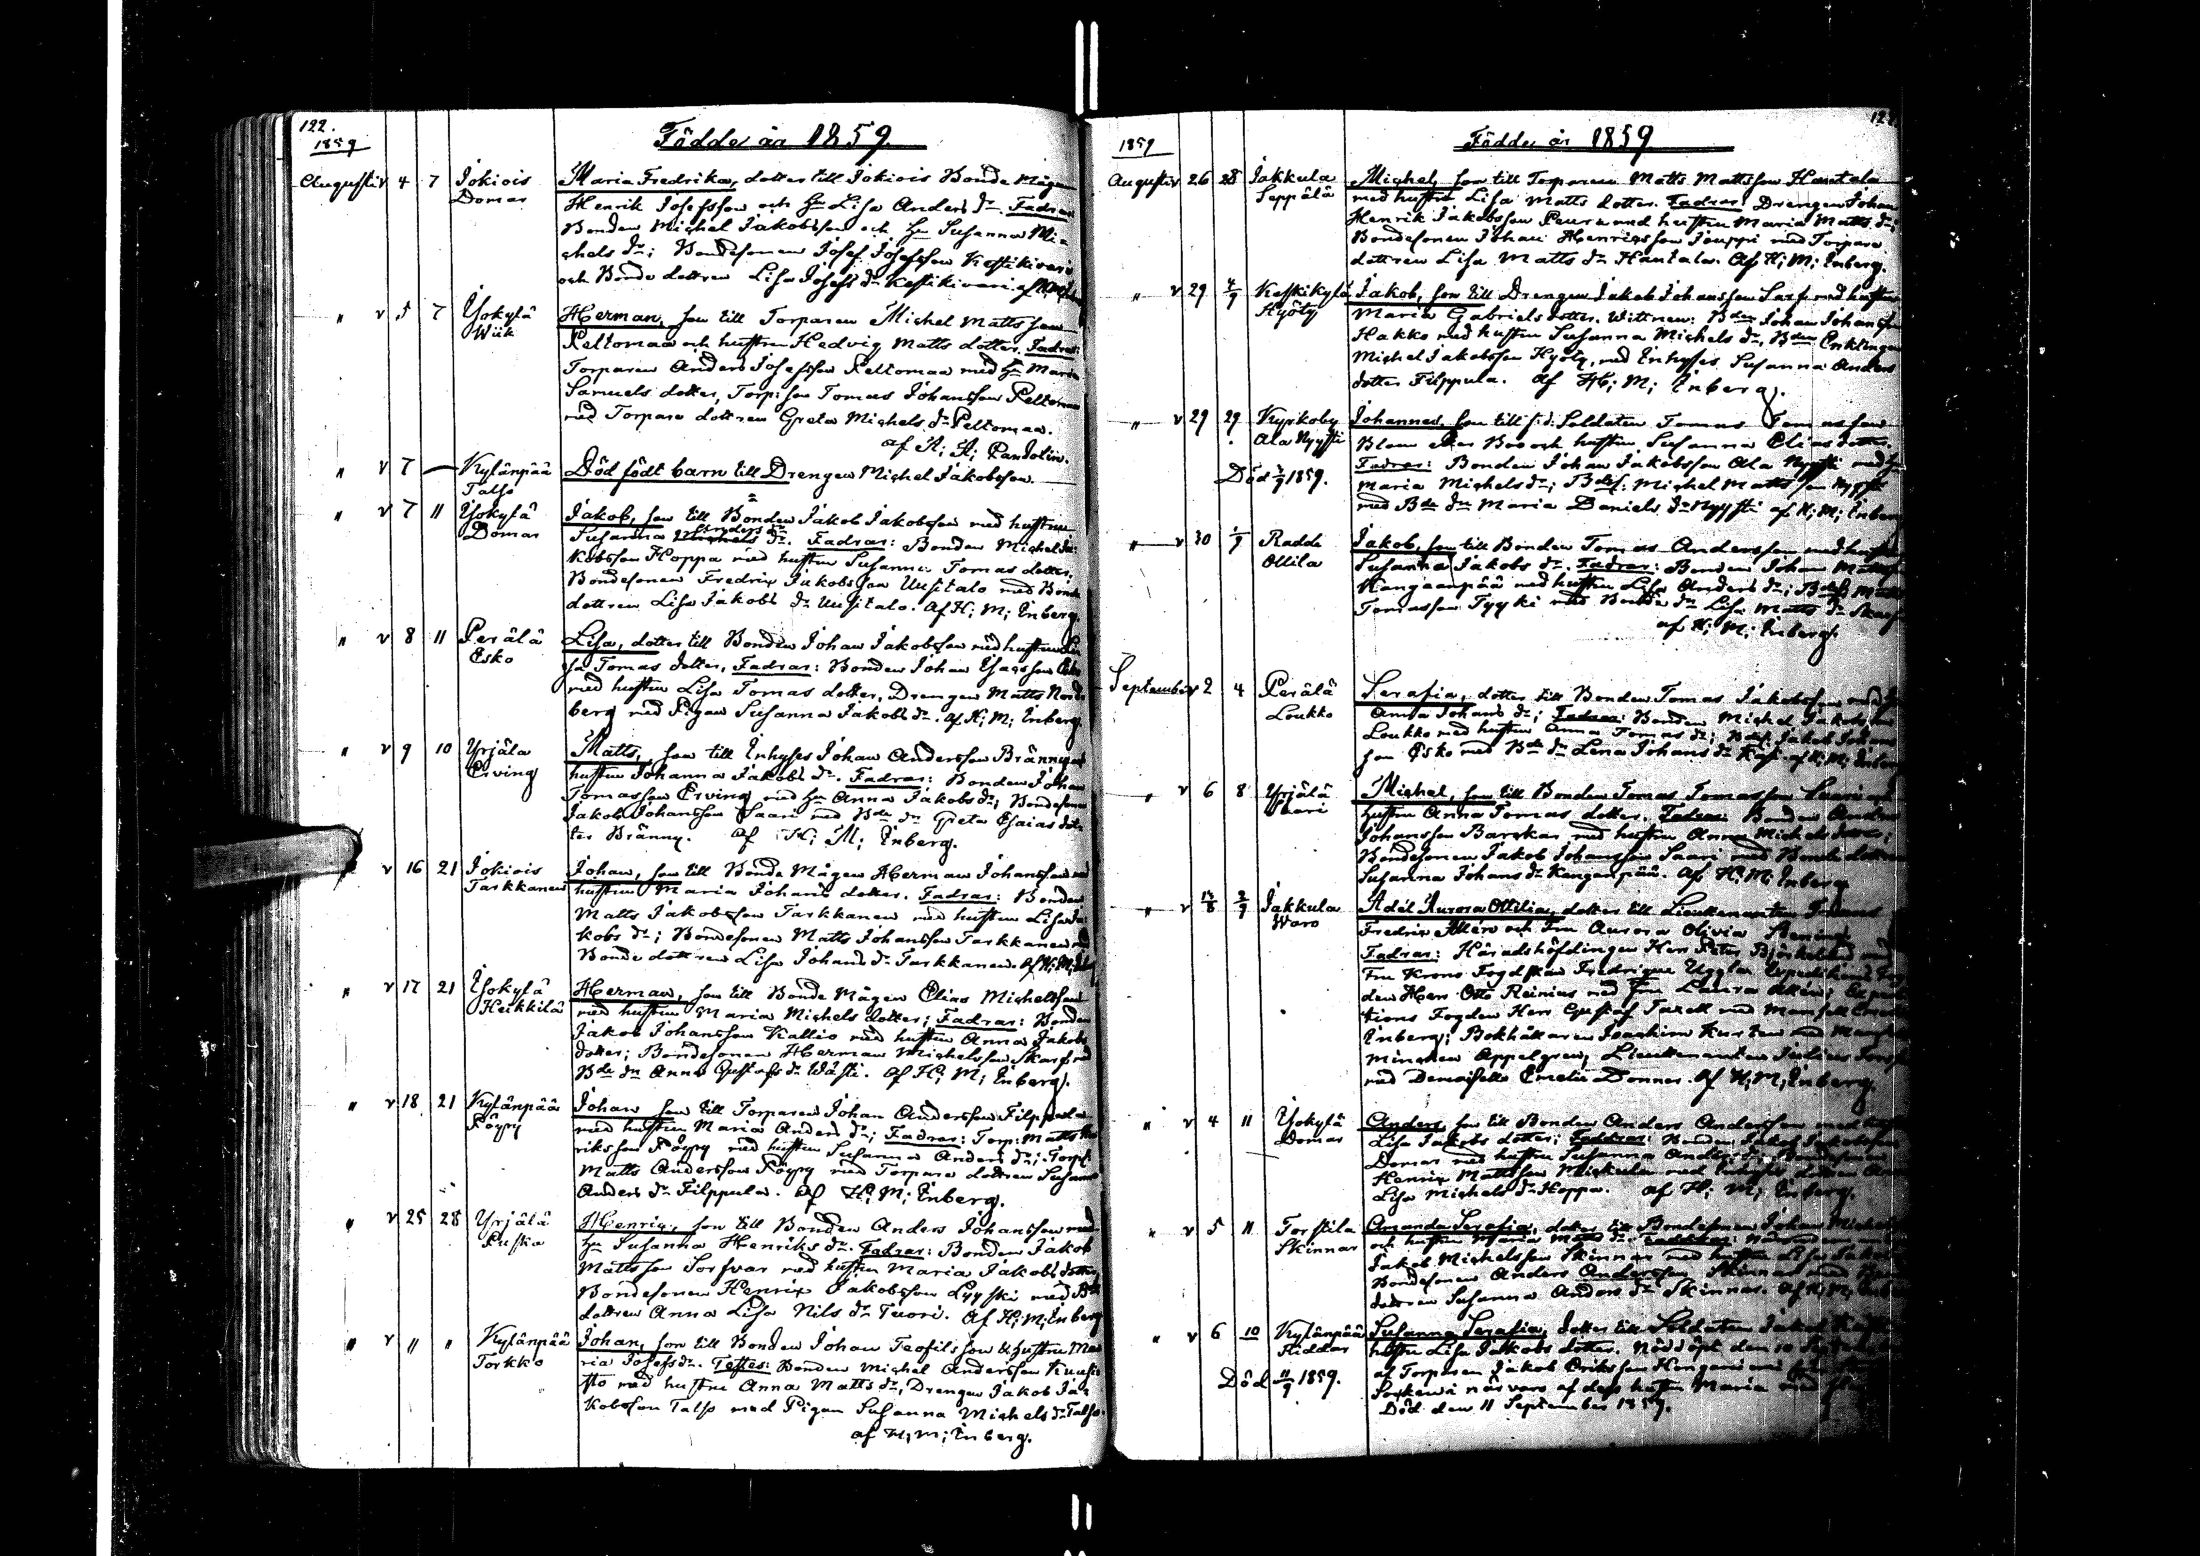 122.
1859
Födde år 1859.
Augusti v 4 7 Jokiois Domar
Maria Fredrika, dotter till Jokiois Bonde Mågen
Henrik Josefsson och Hu Lisa Anders dr. Fadrar
Bonden Michel Jakobsson och Hu Susanna Mi-
chels dr; Bondesonen Josef Josefsson Keskikivari
och Bonde dottren Lisa Josefs dr Keskikivari
" v 5 7 Ylikylä Wiik
Herman, son till Torparen Michel Mattsson
Peltomaa och hustrun Hedvig Matts dotter. Fadrar:
Torparen Anders Josefsson Peltomaa med Hu Maria
Samuels dotter, Torp: son Tomas Johansson Peltomaa
med Torpare dottren Greta Michels dr Peltomaa.
af K; H; Pandolin.
" v 7 — Kylänpää Talso
Död födt barn till Drengen Michel Jakobsson.
" v 7 11 Ylikylä Domar
Jakob, son till Bonden Jakob Jakobsson med hustrun
Susanna Anders dr. Fadrar: Bonden Michel Ja-
kobsson Hoppa med hustrun Susanna Tomas dotter;
Bondesonen Fredrix Jakobsson Uusitalo med Bonde
dottren Lisa Jakobs dr Uusitalo. Af H; M; Enberg.
" v 8 11 Perälä Esko
Lisa, dotter till Bonden Johan Jakobsson med hustrun Li-
sa Tomas dotter, Fadrar: Bonden Johan Esaisson Esko
med hustrun Lisa Tomas dotter, Drengen Matts Nord-
berg med Pigan Susanna Jakobs dr. af H; M; Enberg.
" v 9 10 Yrjälä Erving
Matts, son till Inhyses Johan Andersson Bränny med
hustrun Johanna Jakobs dr. Fadrar: Bonden Johan
Tomasson Erving med Hu Anna Jakobs dr; Bondesonen
Jakob Johansson Saari med Bde dr Greta Esaias dot-
ter Bränny. af H; M; Enberg.
v 16 21 Jokiois Tarkkanen
Johan, son till Bonde Mågen Herman Johansson med
hustrun Maria Johans dotter. Fadrar: Bonden
Matts Jakobsson Tarkkanen med hustrun Lisa Ja-
kobs dr; Bondesonen Matts Johansson Tarkkanen med
Bonde dottren Lisa Johans dr Tarkkanen. Af H; M; Enberg
" v 17 21 Ylikylä Heikkilä
Herman, son till Bonde Mågen Elias Michelsson
med hustrun Maria Michels dotter; Fadrar: Bonden
Jakob Johansson Kallio med hustrun Anna Jakobs
dotter; Bondesonen Herman Michelsson Skarp med
Bde dr Anna Gustafs dr Wästi. af H; M; Enberg.
" v 18 21 Kylänpää Pöyry
Johan son till Torparen Johan Andersson Filppula
med hustrun Maria Anders dr; Fadrar: Torp: Matts Hen-
riksson Pöyry med hustrun Susanna Anders dr; Torp:
Matts Andersson Pöyry med Torpare dottren Susanna
Anders dr Filppula. af H; M; Enberg.
" v 25 28 Yrjälä Puska
Henrix, son till Bonden Anders Johansson med
Hu Susanna Henriks dr. Fadrar: Bonden Jakob
Mattsson Sorsvar med hustrun Maria Jakobs dotter
Bondesonen Henrix Jakobsson Lyyski med Bde
dottren Anna Lisa Nils dr Tuori. Af H; M; Enberg
" v " " Kylänpää Torkko
Johan, son till Bonden Johan Teofilsson & hustrun Ma-
ria Josefs dr. Testes: Bonden Michel Andersson Kuusi-
sto med hustrun Anna Matts dr; Drengen Jakob Ja-
kobsson Talso med Pigan Susanna Michels dr Talso.
af H; M; Enberg.
1859
Födde år 1859
Augusti v 26 28 Jakkula Seppälä
Michel, son till Torparen Matts Mattsson Hantala
med hustrun Lisa Matts dotter. Fadrar: Drengen Johan
Henrik Jakobsson Peura med hustrun Maria Matts dr;
Bondesonen Johan Henriksson Jouppi med Torpare
dottren Lisa Matts dr Hantala. Af H; M; Enberg.
" v 29 4/9 Keskikylä Hyöty
Jakob, son till Drengen Jakob Johansson Sarf med hustrun
Maria Gabriels dotter. Wittnen: Bden Johan Johansson
Hakko med hustrun Susanna Michels dr, Bden Enklingen
Michel Jakobsson Hyöty, med Inhyses Susanna Anders
dotter Filppula. Af H; M; Enberg.
" v 29 29 Kyrkoby Ala Nyysti
Johannes, son till f. d. Soldaten Tomas Tomasson
Blom och hustrun Susanna Elias dotter.
Fadrar: Bonden Johan Jakobsson Ala Nyysti med Hu
Död 3/9 1859.
Maria Michels dr; Bdes: Michel Mattsson Nyysti
med Bde dr Maria Daniels dr Nyysti af H; M; Enberg
" v 30 1/9 Radde Ollila
Jakob, son till Bonden Tomas Andersson med hustrun
Susanna Jakobs dr. Fadrar: Bonden Johan Mattsson
Kangaanpää med hustrun Lisa Anders dr; Bdes: Matts
Tomasson Tyyki med Bonde dr Lisa Matts dr
af H; M; Enberg.
September v 2 4 Perälä Loukko
Serafia, dotter till Bonden Tomas Jakobsson med Hu
Anna Johans dr; Fadrar: Bonden Michel Jakobsson
Loukko med hustrun Anna Tomas dr; Bdes: Jakob Johans-
son Esko med Bde dr Lena Johans dr af H; M; Enberg
" v 6 8 Yrjälä Saari
Michel, son till Bonden Tomas Tomasson Saari med
hustrun Anna Tomas dotter. Fadrar: Bonden Anders
Johansson Barskar med hustrun Anna Michels dotter;
Bondesonen Jakob Johansson Saari med Bonde dottren
Susanna Johans dr Kangaanpää. af H; M; Enberg
" v 14/8 2/9 Jakkula Waro
Adèl Aurora Ottilia, dotter till Lieutenanten Johannes
Fredrix och Fru Aurora Olivia Reinius.
Fadrar: Häradshöfdingen Herr Peter Björksten med
Fru Krono Fogdskan Fredrique Uggla; Expeditions Fog-
den Herr Otto Reinius med Fru Laura Expedi-
tions Fogden Herr Gustaf Tavell med Mamsell
Enberg; Bokhållaren Joachim Kurten med Mamsell
Minchen Appelgren, Lieutenanten Julius
med Demoiselle Emelie Donner. Af H; M; Enberg.
" v 4 11 Ylikylä Domar
Anders, son till Bonden Anders Andersson med hustrun
Lisa Jakobs dotter; Faddrar: Bonden Jakob Jakobsson
Domar med hustrun Susanna Anders dr; Bondesonen
Henrix Mattsson med Inhyses dottren
Lisa Michels dr Hoppa. af H; M; Enberg.
" v 5 11 Torstila Skinnar
Amanda Serafia, dotter till Bondesonen Johan Michels
och hustrun Maria Matts dr. Faddrar:
Jakob Michelsson Skinnar med hustrun Lisa Jakobs
Bondesonen Anders Andersson Skinnar med Bonde
dottren Susanna Anders dr Skinnar. Af H; M; Enberg
" v 6 10 Kylänpää Riddar
Susanna Serafia, dotter till Soldaten Jakob
hustrun Lisa Jakobs dotter. Nöddöpt den 10 September
af Torparen Jakob Eriksson
Död 11/9 1859.
närvaro af dess hustru Maria
Död den 11 September 1859.